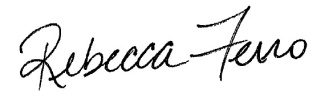 Rebecca Ferro